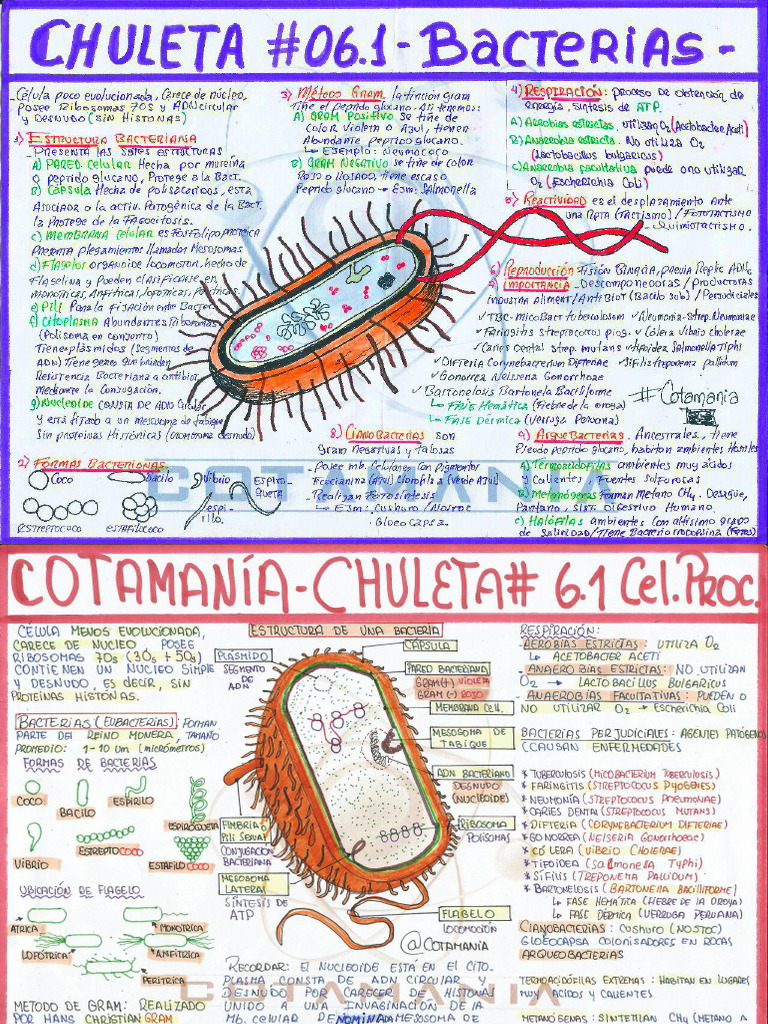 CHULETA #06.1 - BACTERIAS -
Célula poco evolucionada, Carece de núcleo,
Posee Ribosomas 70S y ADN circular
y DESNUDO (SIN HISTONAS)
1) ESTRUCTURA BACTERIANA
Presenta las sgtes estructuras
A) PARED CELULAR Hecha por mureína
o peptido glucano, Protege a la Bact.
B) CÁPSULA Hecha de polisacáridos, está
Asociada a la activ. Patogénica de la Bact.
la Protege de la Fagocitosis.
C) MEMBRANA CELULAR es Fosfolipoproteica
Presenta plegamientos llamados Mesosomas
d) Flagelos organoide locomotor, hecho de
Flagelina y Pueden clasificarse en
e) Pili Para la fijación entre Bacterias
f) Citoplasma Abundantes Ribosomas
(Polisoma en conjunto)
Tiene plásmidos (segmentos de
ADN) Tiene genes que brindan
Resistencia Bacteriana a antibiot.
Mediante la Conjugación.
g) Nucleoide CONSTA DE ADN Circular
y está fijado a un mesosoma de tabique
Sin proteinas Histónicas (cromosoma desnudo)
2) FORMAS BACTERIANAS
Coco
bacilo
Vibrio
ESPIROQUETA
ESTREPTOCOCO
ESTAFILOCOCO
espirilo.
3) Método Gram. la tinción Gram
Tiñe el peptido glucano. Así tenemos:
A) GRAM POSITIVO se tiñe de
Color Violeta o Azul, tienen
Abundante peptido glucano.
→ Ejemplo: Neumococo
B) GRAM NEGATIVO se tiñe de color
Rojo o Rosado, tiene escaso
Peptido glucano → Ejm: Salmonella
4) RESPIRACIÓN: PROCESO DE obtención de
energía, síntesis de ATP.
A) Aerobias estrictas. utilizan O₂ (Acetobacter Aceti)
B) Anaerobia estrictas. No utiliza O₂
(Lactobacillus bulgaricus)
C) Anaerobia facultativa puede o no utilizar
O₂ (Escherichia Coli)
5) Reactividad es el desplazamiento Ante
una Rpta (Tactismo) / Fototactismo
- Quimiotactismo.
6) Reproducción Fisión Binaria, previa Replic ADN.
7) IMPORTANCIA - Descomponedoras / Productoras
industria aliment / Antibiot (Bacilo sub) / Perjudiciales
✓TBC- micoBact tuberculosum ✓Neumonia-Strep. Neumoniae
✓Faringitis Streptococos piog. ✓Cólera Vibrio cholerae
✓Caries Dental Strep. mutans ✓tifoidea Salmonella Tiphi
✓Difteria Corynebacterium Difteriae ✓Sifilis treponema pallidum
✓Gonorrea Neissena Gonorrhoae
✓Bartonelosis Bartonela Baciliforme
↳ FASE Hemática (Fiebre de la oroya)
↳ FASE Dérmica (Verruga Peruana)
#Cotamanía
8) CIANOBACTERIAS son
Gram negativas y talosas
- Posee mb. Celulares con Pigmentos
Ficocianina (Azul) Clorofila (Verde Azul)
- Realizan Fotosíntesis
↳ Ejm: Cushuro / Nostoc
Gloeo Capsa.
9) ARQUEBACTERIAS. Ancestrales, tiene
Pseudo peptido glucano, habitan ambientes Hostiles
A) Termoacidofilas ambientes muy ácidos
y Calientes. Fuentes sulfurosas
B) Metanógenas Forman Metano CH₄. Desague,
Pantano, Sist. Digestivo Humano.
C) Halófilas ambientes con altísimo grado
de Salinidad / Tiene Bacteriorrodopsina (Fotos)
COTAMANIA
COTAMANÍA - CHULETA # 6.1 Cel. PROC.
CÉLULA MENOS EVOLUCIONADA,
CARECE DE NUCLEO, POSEE
RIBOSOMAS 70s (30s + 50s)
CONTIENEN UN NÚCLEO SIMPLE
Ú DESNUDO, ES DECIR, SIN
PROTEINAS HISTONAS.
BACTERIAS (EUBACTERIAS): FORMAN
PARTE DEL REINO MONERA, TAMAÑO
PROMEDIO: 1-10 um (micrómetros)
FORMAS DE BACTERIAS
COCO
BACILO
ESPIRILO
ESPIROQUETA
VIBRIO
ESTREPTOCOCO
ESTAFILOCOCO
UBICACIÓN DE FLAGELO
ATRICA
MONOTRICA
LOFÓTRICA
ANFITRICA
PERITRICA
METODO DE GRAM: REALIZADO
POR HANS CHRISTIAN GRAM
ESTRUCTURA DE UNA BACTERIA
PLÁSMIDO
SEGMENTO
DE ADN
CÁPSULA
PARED BACTERIANA
GRAM(+) VIOLETA
GRAM(-) ROJO
MEMBRANA CELL.
MESOSOMA DE
TABIQUE
ADN BACTERIANO
DESNUDO
(NUCLEOIDE)
RIBOSOMA
POLISOMAS
FIMBRIA ó
Pili Sexual
CONJUGACIÓN
BACTERIANA
MESOSOMA
LATERAL
SÍNTESIS DE
ATP
FLAGELO
LOCOMOCIÓN
@COTAMANÍA
RECORDAR: EL NUCLEOIDE ESTÁ EN EL CITO-
PLASMA CONSTA DE ADN CIRCULAR Y
DESNUDO POR CARECER DE HISTONAS
UNIDO A UNA INVAGINACIÓN DE LA
Mb. CELULAR DENOMINADA MESOSOMA DE
RESPIRACIÓN:
AEROBIAS ESTRICTAS: UTILIZA O₂
↳ ACETOBACTER ACETI
ANAEROBIAS ESTRICTAS: NO UTILIZAN
O₂ → LACTOBACILLUS BULGARICUS
ANAEROBIAS FACULTATIVAS: PUEDEN O
NO UTILIZAR O₂ → ESCHERICHIA COLI
BACTERIAS PERJUDICIALES: AGENTES PATÓGENOS
CCAUSAN ENFERMEDADES
* TUBERCULOSIS (MICOBACTERIUM TUBERCULOSIS)
* FARINGITIS (STREPTOCOCCUS PYOGENES)
* NEUMONÍA (STREPTOCOCCUS PNEUMONAE)
* CARIES DENTAL (STREPTOCOCCUS MUTANS)
* DIFTERIA (CORYNEBACTERIUM DIFTERIAE)
* GONORREA (NEISERIA GONORRHOEAE)
* CÓLERA (VIBRIO CHOLERAE)
* TIFOIDEA (SALMONELLA TYPHI)
* SÍFILIS (TREPONEMA PALLIDUM)
* BARTONELOSIS (BARTONELLA BACILLIFORME)
↳ FASE HEMÁTICA (FIEBRE DE LA OROYA)
↳ FASE DÉRMICA (VERRUGA PERUANA)
CIANOBACTERIAS: CUSHURO (NOSTOC)
GLOEOCAPSA COLONISADORES EN ROCAS
ARQUEOBACTERIAS
TERMOACIDÓFILAS EXTREMAS: HABITAN EN LUGARES
MUY ACIDOS Y CALIENTES
METANÓGENAS: SINTETIZAN CH₄ (METANO) A
COTAMANIA